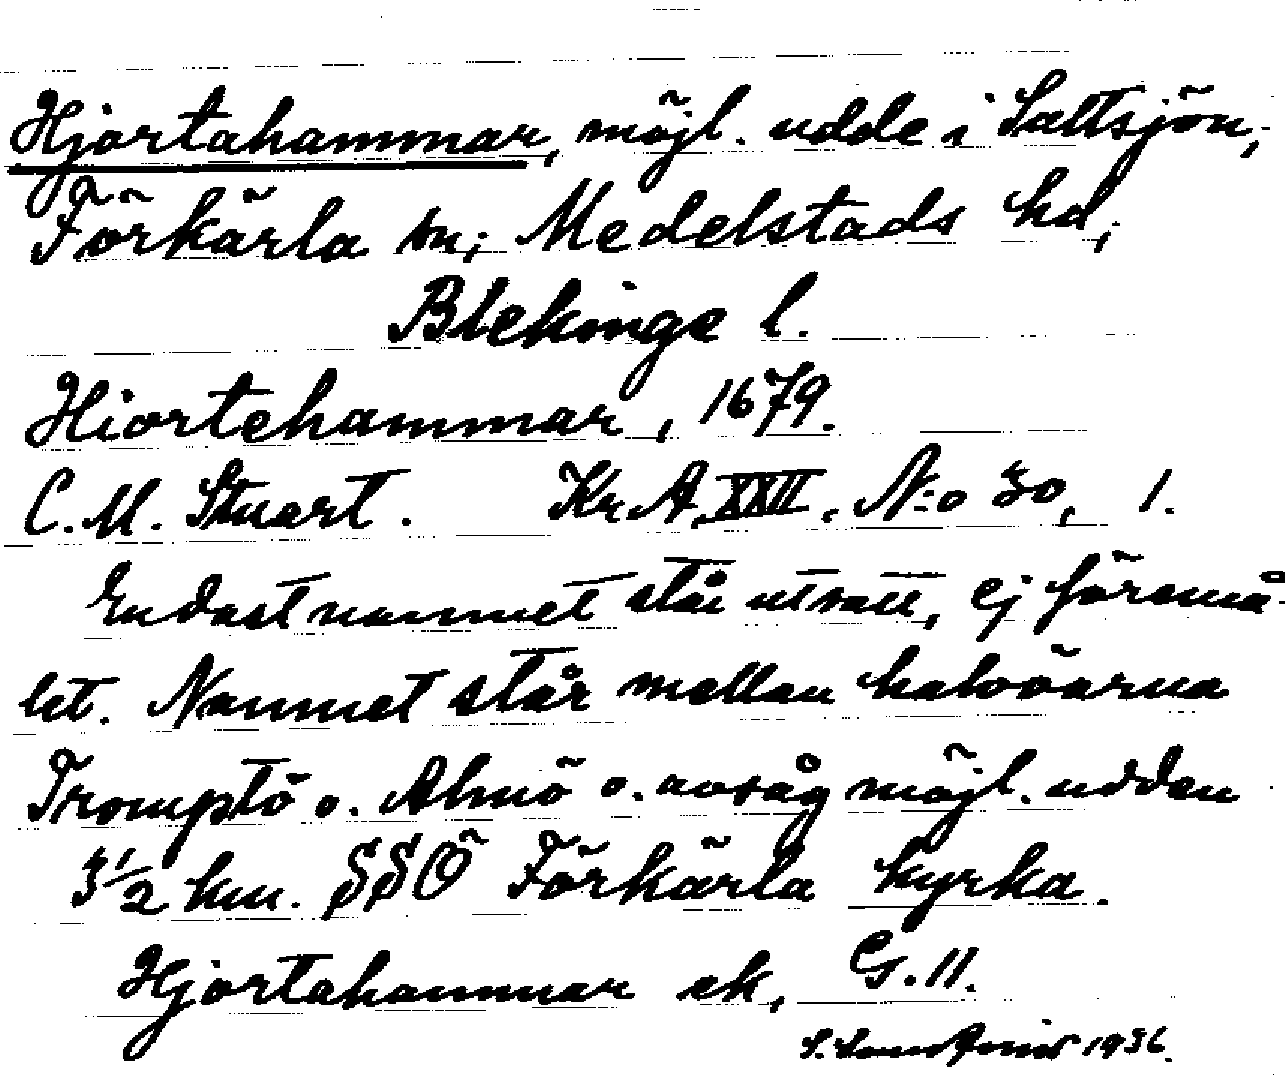 Hjortahammar, möjl. udde i Saltsjön,
Förkärla sn; Medelstads hd,
Blekinge l.
Hiortehammar, 1679.
C. M. Stuart. Kr. A. XXII. N:o 30, 1.
Endast namnet står utsatt, ej föremå-
let. Namnet står mellan halvöarna
Tromptö o. Almö o. avsåg möjl. udden
3 1/2 km. SSÖ Förkärla kyrka.
Hjortahammar ek, G. 11.
S. 1936.